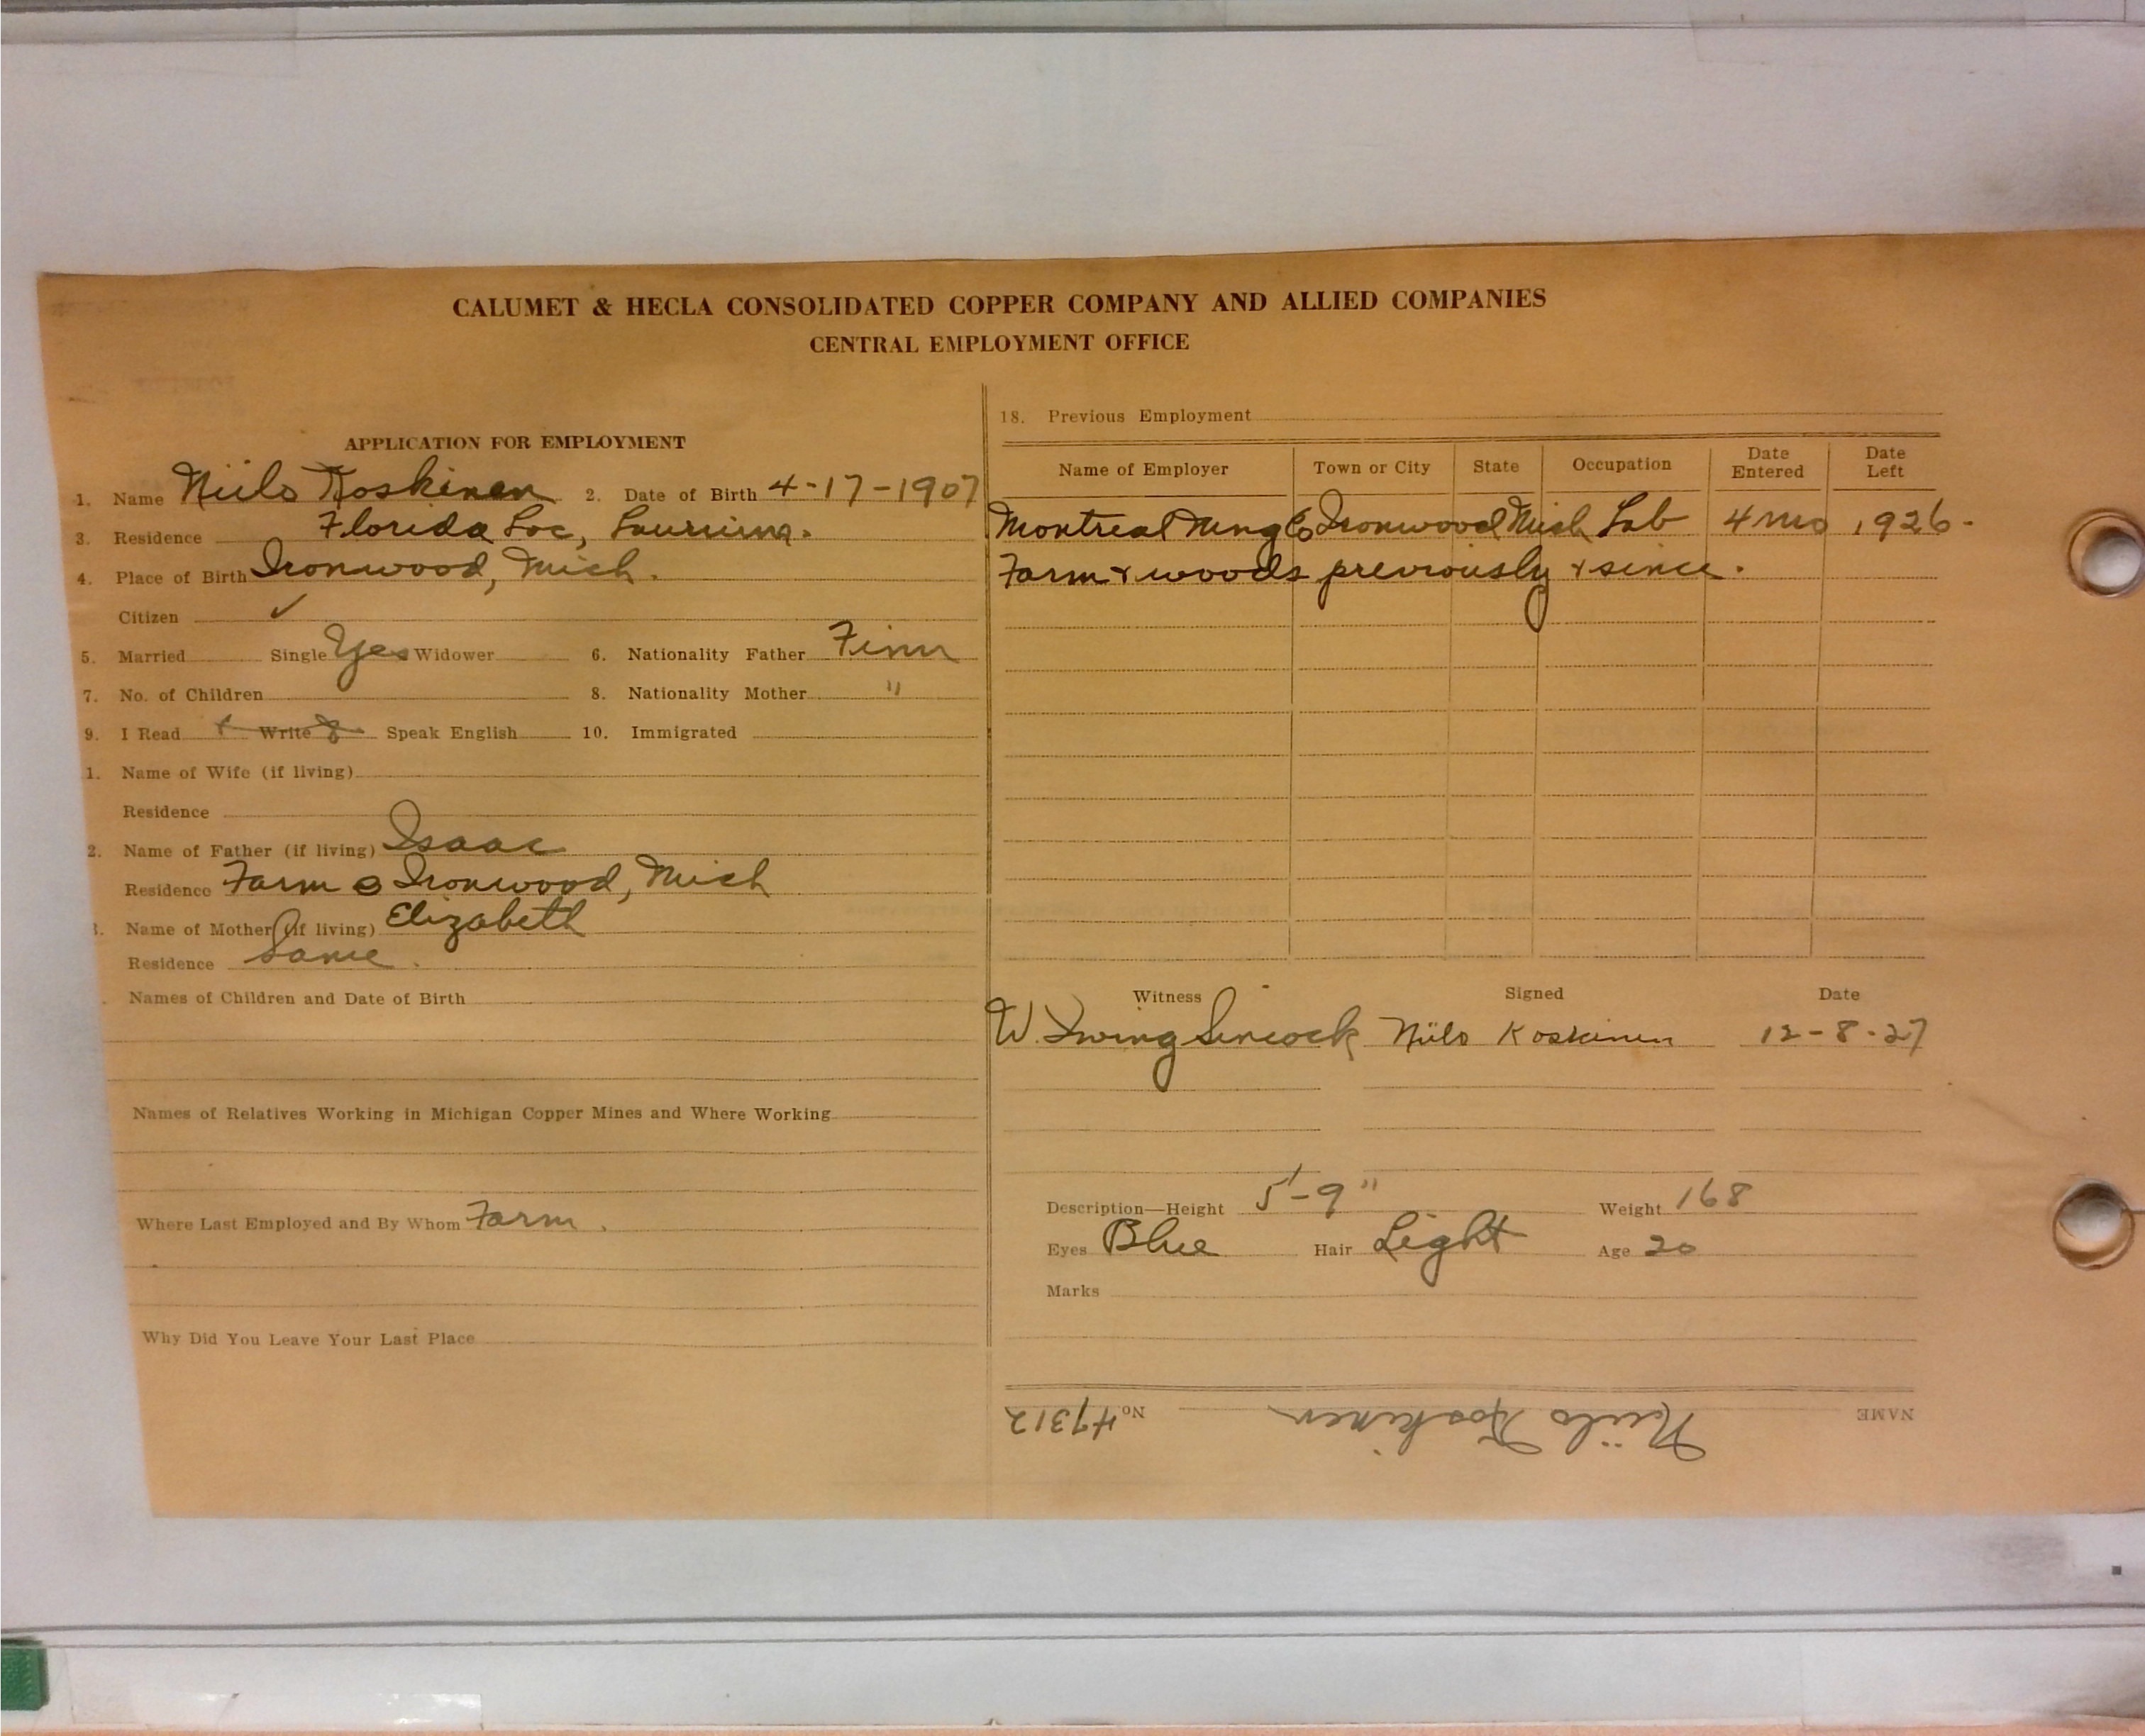 CALUMET & HECLA CONSOLIDATED COPPER COMPANY AND ALLIED COMPANIES
CENTRAL EMPLOYMENT OFFICE
APPLICATION FOR EMPLOYMENT
1. Name Niilo Koskinen 2. Date of Birth 4-17-1907
3. Residence Florida Loc, Laurium.
4. Place of Birth Ironwood, Mich.
Citizen ✓
5. Married Single Yes Widower 6. Nationality Father Finn
7. No. of Children 8. Nationality Mother "
9. I Read Write Speak English 10. Immigrated
1. Name of Wife (if living)
Residence
2. Name of Father (if living) Isaac
Residence Farm @ Ironwood, Mich
Name of Mother (if living) Elizabeth
Residence Same.
Names of Children and Date of Birth
Names of Relatives Working in Michigan Copper Mines and Where Working
Where Last Employed and By Whom Farm.
Why Did You Leave Your Last Place
18. Previous Employment
Name of Employer Town or City State Occupation Date Entered Date Left
Montreal Mng Co Ironwood Mich Lab 4 mo 1926-
Farm & woods previously & since.
Witness Signed Date
W. Irving Sincock Niilo Koskinen 12-8-27
Description—Height 5'-9" Weight 168
Eyes Blue Hair Light Age 20
Marks
NAME Niilo Koskinen No. 47312